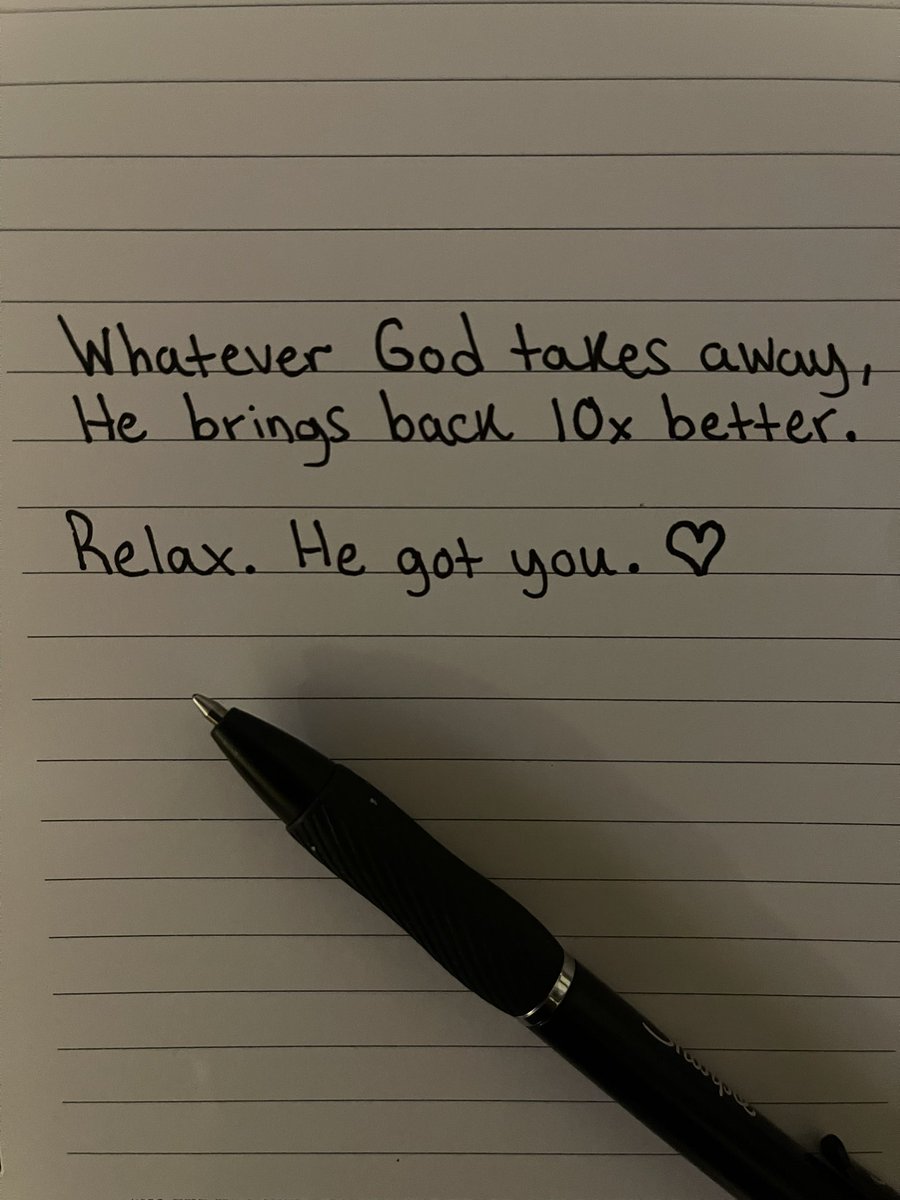 Whatever God takes away,
He brings back 10x better.
Relax. He got you. ♡
Sharpie